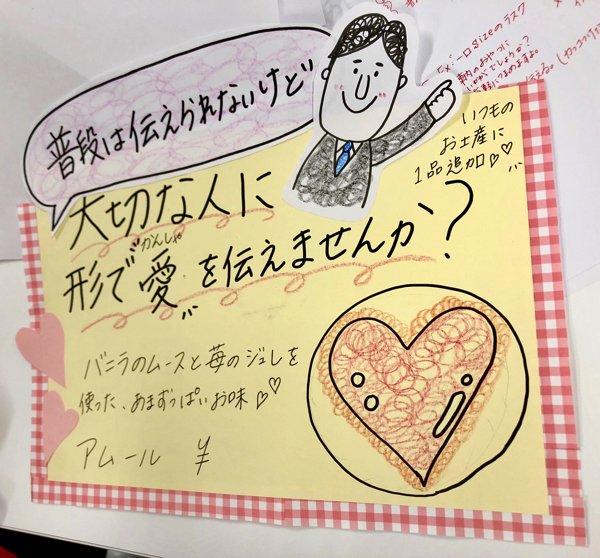 普段は伝えられないけど
いつもの
お土産に
1品追加♡♡
大切な人に
かんしゃ
形で"愛"を伝えませんか?
バニラのムースと苺のジュレを
使った、あまずっぱいお味♡♡
アムール ¥
一口sizeのラスク